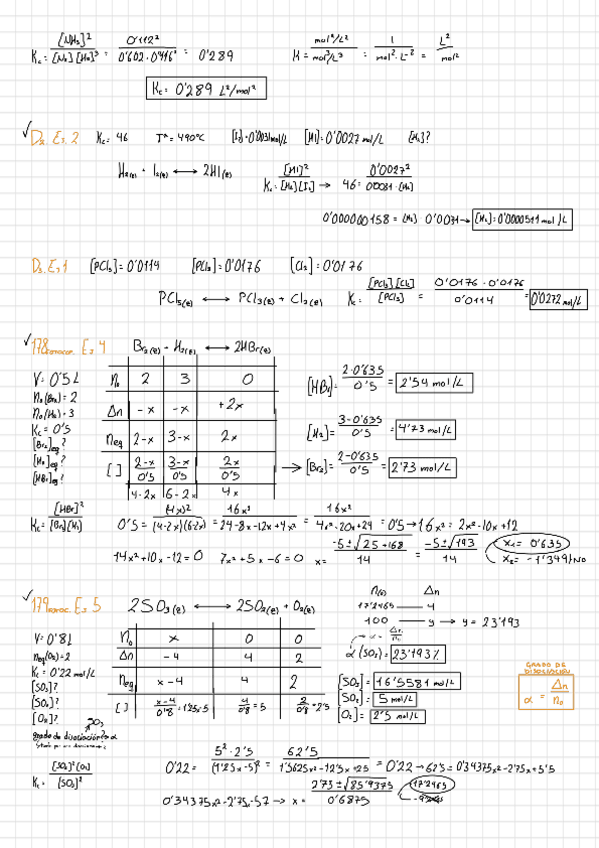 Kc = [NH₃]² / [N₂][H₂]³ = 0'112² / 0'602·0'416³ = 0'289
K = mol²/L² / mol⁴/L⁴ = 1 / mol²·L⁻² = L²/mol²
Kc = 0'289 L²/mol²
√ D2. Ej. 2 Kc = 46 Tª = 490ºC [I₂] = 0'0031 mol/L [HI] = 0'0027 mol/L [H₂]?
H₂(g) + I₂(g) ⟷ 2HI(g) Kc = [HI]² / [H₂][I₂] → 46 = 0'0027² / 0'0031·[H₂]
0'000000158 = [H₂]·0'0031 → [H₂] = 0'0000511 mol/L
D3. Ej 1 [PCl₅] = 0'0114 [PCl₃] = 0'0176 [Cl₂] = 0'0176
PCl₅(g) ⟷ PCl₃(g) + Cl₂(g) Kc = [PCl₃][Cl₂] / [PCl₅] = 0'0176·0'0176 / 0'0114 = 0'0272 mol/L
√ 178 Ej 4 Br₂(g) + H₂(g) ⟷ 2HBr(g)
V = 0'5 L n₀ 2 3 0
n₀(Br₂) = 2
n₀(H₂) = 3 Δn -x -x +2x
Kc = 0'5
[Br₂]eq? neq 2-x 3-x 2x
[H₂]eq?
[HBr]eq? [ ] 2-x/0'5 3-x/0'5 2x/0'5
4-2x 6-2x 4x
[HBr] = 2·0'635 / 0'5 = 2'54 mol/L
[H₂] = 3-0'635 / 0'5 = 4'73 mol/L
→ [Br₂] = 2-0'635 / 0'5 = 2'73 mol/L
Kc = [HBr]² / [Br₂][H₂] 0'5 = (4x)² / (4-2x)(6-2x) = 16x² / 24-8x-12x+4x² = 16x² / 4x²-20x+24 = 0'5 → 16x² = 2x²-10x+12
14x²+10x-12 = 0 7x²+5x-6 = 0 x = -5±√25+168 / 14 = -5±√193 / 14 x₁ = 0'635
x₂ = -1'349 NO
√ 179 Ej 5 2SO₃(g) ⟷ 2SO₂(g) + O₂(g)
n₀ Δn
17'2465 — 4
100 — y → y = 23'193
α = Δn/n₀
α (SO₃) = 23'193%
V = 0'8 L n₀ x 0 0
neq(O₂) = 2 Δn -4 4 2
Kc = 0'22 mol/L
[SO₃]? neq x-4 4 2
[SO₂]?
[O₂]? [ ] x-4/0'8 = 1'25x-5 4/0'8 = 5 2/0'8 = 2'5
grado de disociación? α
SO₃
[SO₃] = 16'5581 mol/L
[SO₂] = 5 mol/L
[O₂] = 2'5 mol/L
GRADO DE DISOCIACIÓN
α = Δn / n₀
Kc = [SO₂]²[O₂] / [SO₃]² 0'22 = 5²·2'5 / (1'25x-5)² = 62'5 / 1'5625x²-12'5x+25 = 0'22 → 62'5 = 0'34375x²-2'75x+5'5
0'34375x²-2'75x-57 → x = 2'75±√85'9375 / 0'6875 17'2465